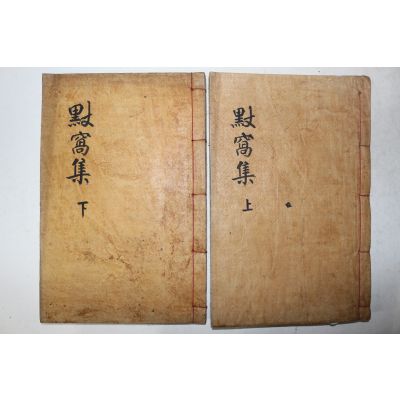 默窩集
上
默窩集
下